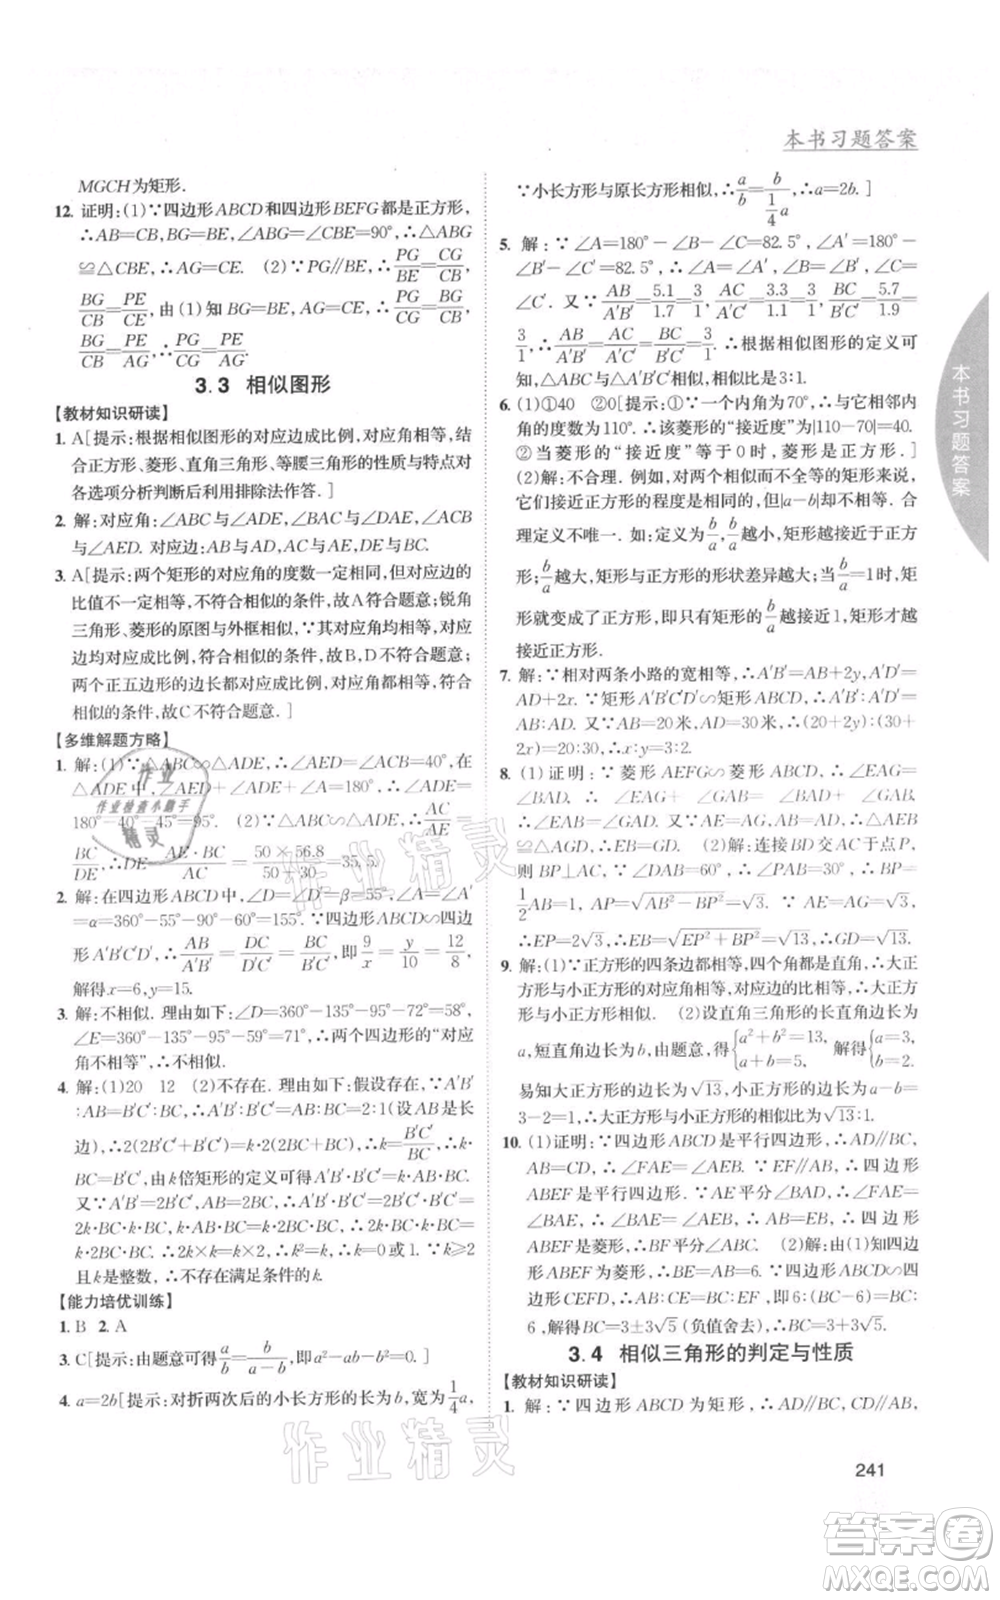 本书习题答案
MGCH为矩形.
12. 证明:(1)∵四边形ABCD和四边形BEFG都是正方形,
∴AB=CB,BG=BE,∠ABG=∠CBE=90°,∴△ABG
≌△CBE,∴AG=CE. (2)∵PG∥BE,∴PG/BE=CG/CB,
BG/CB=PE/CE,由(1)知BG=BE,AG=CE,∴PG/BG=CG/CB,
BG/CB=PE/AG,∴PG/CG=PE/AG.
3.3 相似图形
【教材知识研读】
1. A[提示:根据相似图形的对应边成比例,对应角相等,结
合正方形、菱形、直角三角形、等腰三角形的性质与特点对
各选项分析判断后利用排除法作答.]
2. 解:对应角:∠BAC与∠DAE,∠BAC与∠ADE,∠ACB
与∠AED. 对应边:AB与AD,AC与AE,BC与DE.
3. A[提示:两个矩形的对应角的度数一定相同,但对应边的
比值不一定相等,不符合相似的条件,故A符合题意;锐角
三角形、菱形的原图与外框相似,∵对应角均相等,对应
边均对应成比例,符合相似的条件,故B,D不符合题意;
两个正五边形的边长都对应成比例,对应角也相等,符合
相似的条件,故C不符合题意.]
【多维解题方略】
1. 解:(1)∵△ABC∽△ADE,∴∠AED=∠ACB=40°,在
△ADE中,∠AED+∠ADE+∠A=180°,∴∠ADE=
180°-40°-45°=95°. (2)∵△ABC∽△ADE,∴AC/AE=
BC/DE,∴DE=AE·BC/AC=50×56.8/50+30=35.5(cm).
2. 解:在四边形ABCD中,∠D=∠D′=β=55°,∠A=∠A′
=α=360°-55°-90°-60°=155°. ∵四边形ABCD∽四边
形A′B′C′D′,∴AB/A′B′=DC/D′C′=BC/B′C′,即9/x=y/10=12/8,
解得x=6,y=15.
3. 解:不相似. 理由如下:∵∠D=360°-135°-95°-72°=58°,
∠E=360°-135°-95°-59°=71°,∴两个四边形的“对应
角不相等”,∴不相似.
4. 解:(1)20 12 (2)不存在. 理由如下:∵A′B′:B′C′
=AB:BC=2BC:BC,∴A′B′:B′C′=AB:BC=2:1(设长
边),∴2(2B′C′+B′C′)=k·2(2BC+BC),∴k=B′C′/BC,∴k·
BC=B′C′,由k倍矩形的定义可得A′B′·B′C′=k·AB·BC,
又∵A′B′=2B′C′,∴2B′C′·B′C′=k·2BC·BC,∴
2k·BC·k·BC=2k·BC·BC,∴k²=k,∴k=0或1. ∵k≥2
且k是整数,∴不存在满足条件的k.
【能力培优训练】
1. B 2. A
3. C[提示:由题意可得a/b=b/a-b.]
4. a=2b[提示:对折两次后的小长方形的长为b,宽为1/4a,
∵小长方形与原长方形相似,∴a/b=b/1/4a,∴a=2b.]
5. 解:∵∠A=180°-∠B-∠C=82.5°,∠A′=180°-
∠B′-∠C′=82.5°,∴∠A=∠A′,∠B=∠B′,∠C=
∠C′. 又∵AB/A′B′=5.1/1.7=3/1,AC/A′C′=3.3/1.1=3/1,BC/B′C′=5.7/1.9=
3/1,∴AB/A′B′=AC/A′C′=BC/B′C′,∴根据相似图形的定义可
知,△ABC∽△A′B′C′,且相似比是3:1.
6. (1)①40 ②0[提示:①∵菱形的一个内角为70°,∴相邻
内角的度数为110°,∴该菱形的“接近度”为|110-70|=40.
②当菱形的“接近度”等于0时,菱形是正方形.]
(2)解:不合理. 例如,对两个相似而不全等的矩形来说,
它们接近正方形的程度是相同的,但|a-b|却不相等. 合
理定义不唯一. 如:定义为b/a,b/a越小,矩形越接近于正方
形;b/a越大,矩形与正方形的形状差异越大;当b/a=1时,矩形
就变成了正方形,即只有矩形的b/a越接近1,矩形才越
接近正方形.
7. 解:∵相对两条小路的宽相等,∴A′B′=AB+2y,A′D′=
AD+2x. ∵矩形A′B′C′D′∽矩形ABCD,∴A′D′:A′B′=
AD:AB. 又∵AB=20米,AD=30米,∴(30+2x):(20+
2y)=30:20,解得x:y=3:2.
8. (1)证明:∵菱形AEFG∽菱形ABCD,∴∠EAG=
∠BAD,∴∠EAG+∠GAB=∠BAD+∠GAB,
∴∠EAB=∠GAD. ∵AE=AG,AB=AD,∴△AEB
≌△AGD,∴EB=GD. (2)解:连接BD交AC于点P,
则BP⊥AC,∵∠DAB=60°,∴∠PAB=30°,∴BP=
1/2AB=1,AP=√AB²-BP²=√3. ∵AE=AG=√3,
∴EP=2√3,∴EB=√EP²+BP²=√13,∴GD=√13.
9. (1)∵正方形的四条边都相等,四个角都是直角,∴大正
方形与小正方形相似. (2)设直角三角形的长直角边长为
a,短直角边长为b,由题意,得{a²+b²=13,a+b=5, 解得{a=3,b=2.
易知大正方形的边长为√13,小正方形的边长为
3-2=1,∴大正方形与小正方形的相似比为√13:1.
10. (1)证明:∵四边形ABCD是平行四边形,∴AD∥BC,
∴∠FAE=∠AEB. ∵EF∥AB,∴四边形
ABEF是平行四边形. ∵AE平分∠BAF,∴∠FAE=
∠BAE,∴∠BAE=∠AEB,∴AB=EB,∴四边形
ABEF是菱形. (2)解:∵由(1)知四边形
ABEF为菱形,∴BE=AB=6. ∵四边形ABCD∽四边
形CEFD,∴AB/CE=BC/EF,即6:(BC-6)=BC:
6,解得BC=3±3√5(负值舍去),∴BC=3+3√5.
3.4 相似三角形的判定与性质
【教材知识研读】
1. 解:∵四边形ABCD为矩形,∴AD∥BC,CD∥AB,
本书习题答案
241
作业精灵
作业检查小助手
作业精灵
作业精灵
答案圈
MXQE.COM